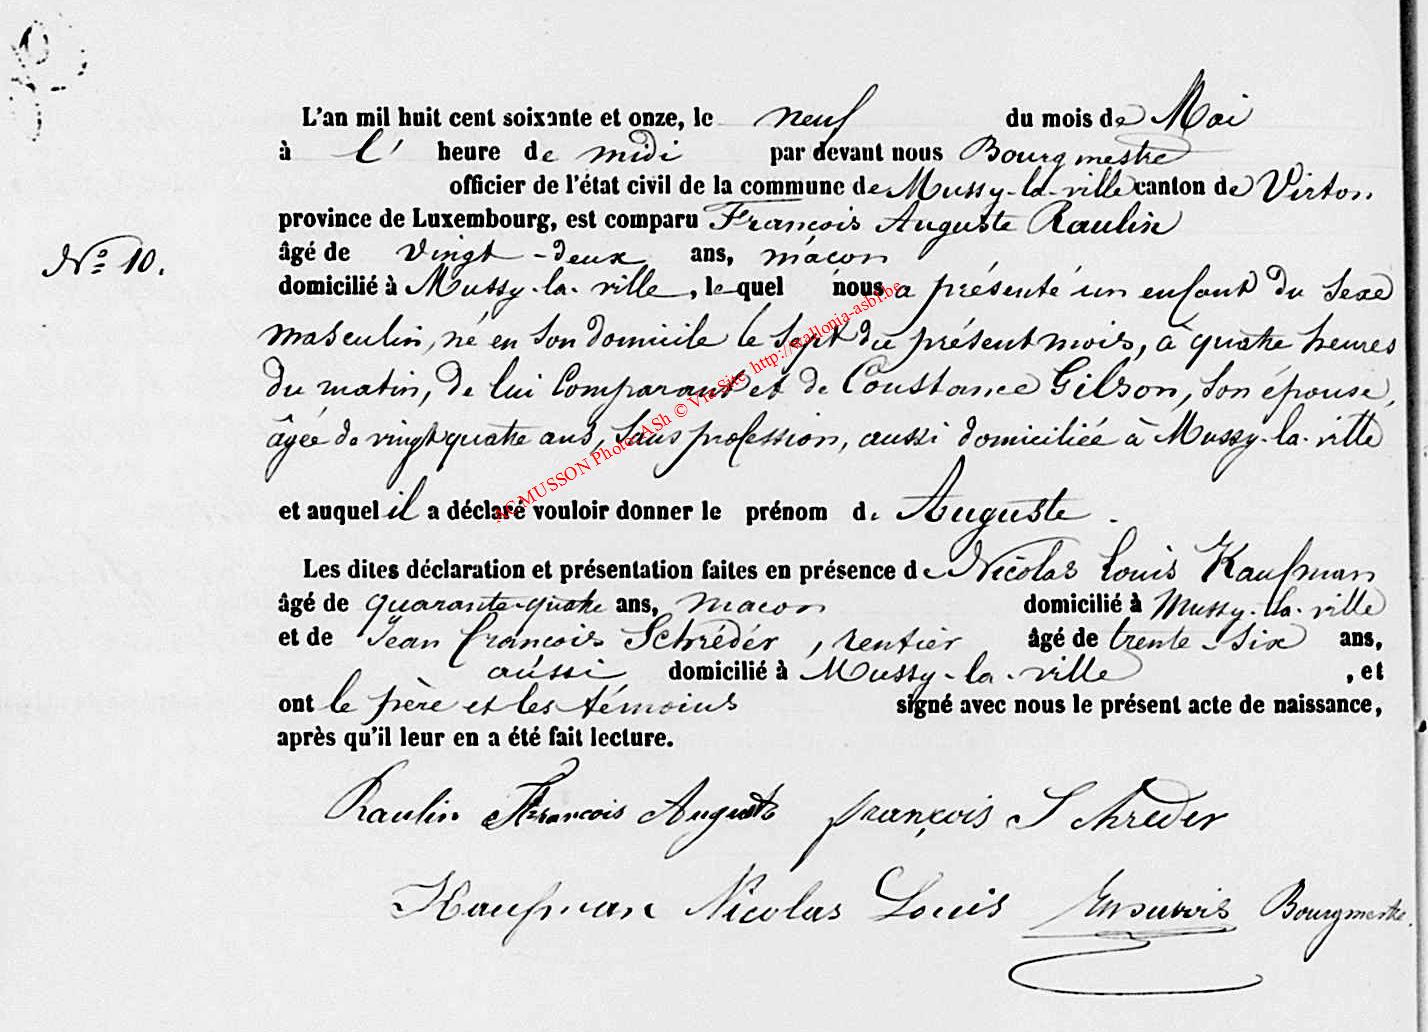 L'an mil huit cent soixante et onze, le neuf du mois de Mai
à l' heure de midi par devant nous Bourgmestre
officier de l'état civil de la commune de Mussy-la-ville canton de Virton
province de Luxembourg, est comparu François Auguste Raulin
N° 10.
âgé de vingt-deux ans, maçon
domicilié à Mussy-la-ville, lequel nous a présenté un enfant du sexe
masculin, né en son domicile le sept du présent mois, à quatre heures
du matin, de lui Comparant et de Constance Gilson, son épouse,
âgée de vingt quatre ans, sans profession, aussi domiciliée à Mussy-la-ville
AC MUSSON Photo ASh © Via Site http://wallonia-asbl.be
et auquel il a déclaré vouloir donner le prénom de Auguste.
Les dites déclaration et présentation faites en présence de Nicolas Louis Kaufman
âgé de quarante-quatre ans, macon domicilié à Mussy-la-ville
et de Jean François Schréder, rentier âgé de trente-six ans,
aussi domicilié à Mussy-la-ville, et
ont le père et les témoins signé avec nous le présent acte de naissance,
après qu'il leur en a été fait lecture.
Raulin François Auguste françois Schréder
Kaufman Nicolas Louis Bourgmestre.